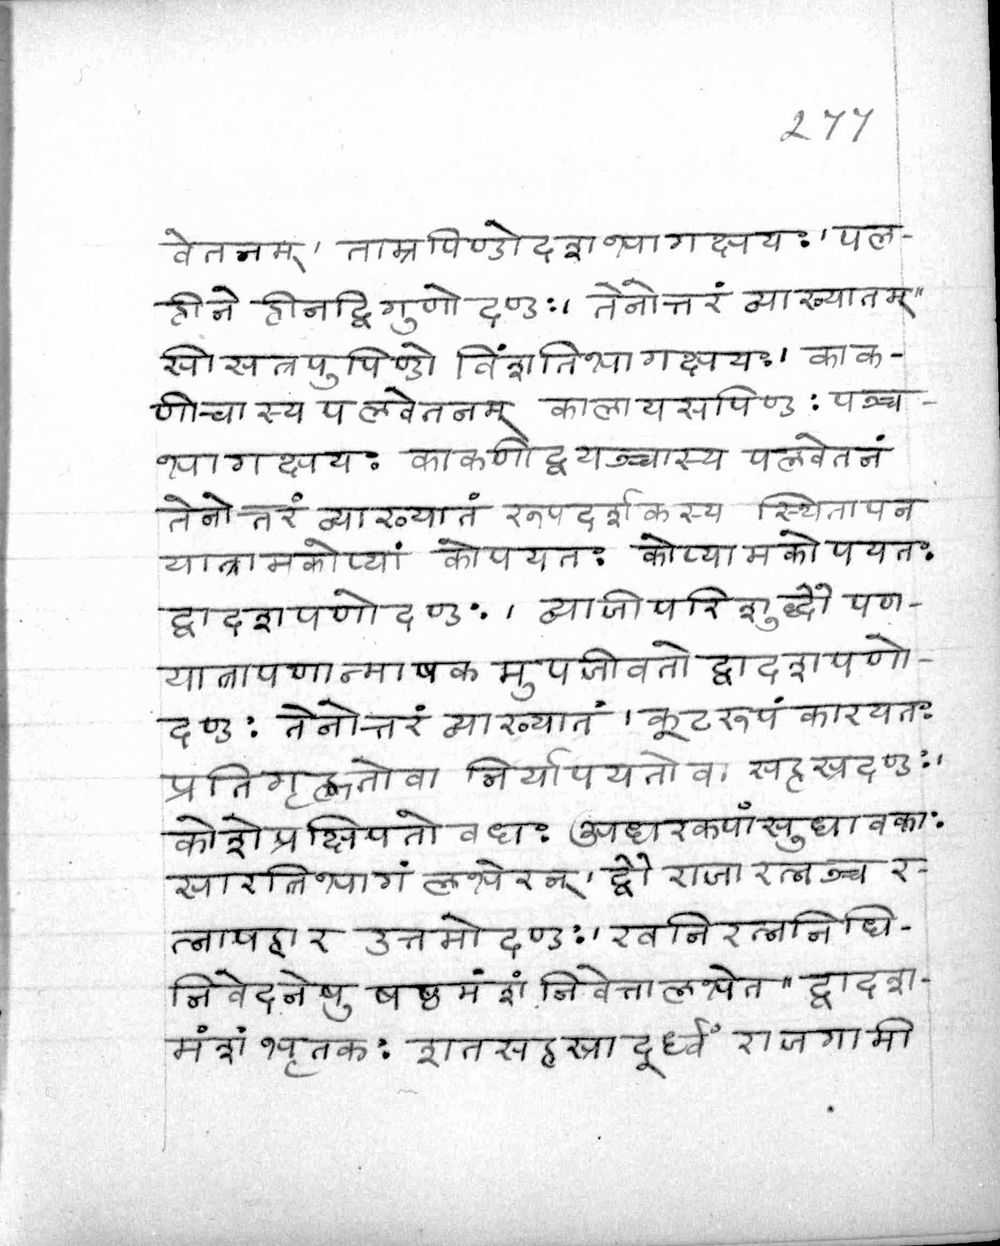 277
वेतनम्। ताम्रपिण्डो दशभागक्षयः। पल-
हीने हीनद्विगुणो दण्डः। तेनोत्तरं व्याख्यातम्॥
सीसत्रपुपिण्डो विंशतिभागक्षयः। काक-
णी चास्य पलवेतनम् कालायसपिण्डः पञ्च-
भागक्षयः काकणीद्वयञ्चास्य पलवेतनं
तेनोत्तरं व्याख्यातं रूपदर्शकस्य स्थितापन
यात्रामकोप्यां कोपयतः कोप्यामकोपयतः
द्वादशपणो दण्डः। व्याजीपरिशुद्धौ पण-
यात्रापणान्माषकमुपजीवतो द्वादशपणो-
दण्डः तेनोत्तरं व्याख्यातं। कूटरूपं कारयतः
प्रतिगृह्णतो वा निर्यापयतो वा सहस्रदण्डः।
कोशे प्रक्षिपतो वधः अधरकपाँसुधावकाः
सारत्रिभागं लभेरन्। द्वौ राजा रत्नञ्च र-
त्नापहार उत्तमो दण्डः। खनिरत्ननिधि-
निवेदनेषु षष्ठमंशं निवेत्ता लभेत॥ द्वादश-
मंशं भृतकः शतसहस्रादूर्ध्वं राजगामी